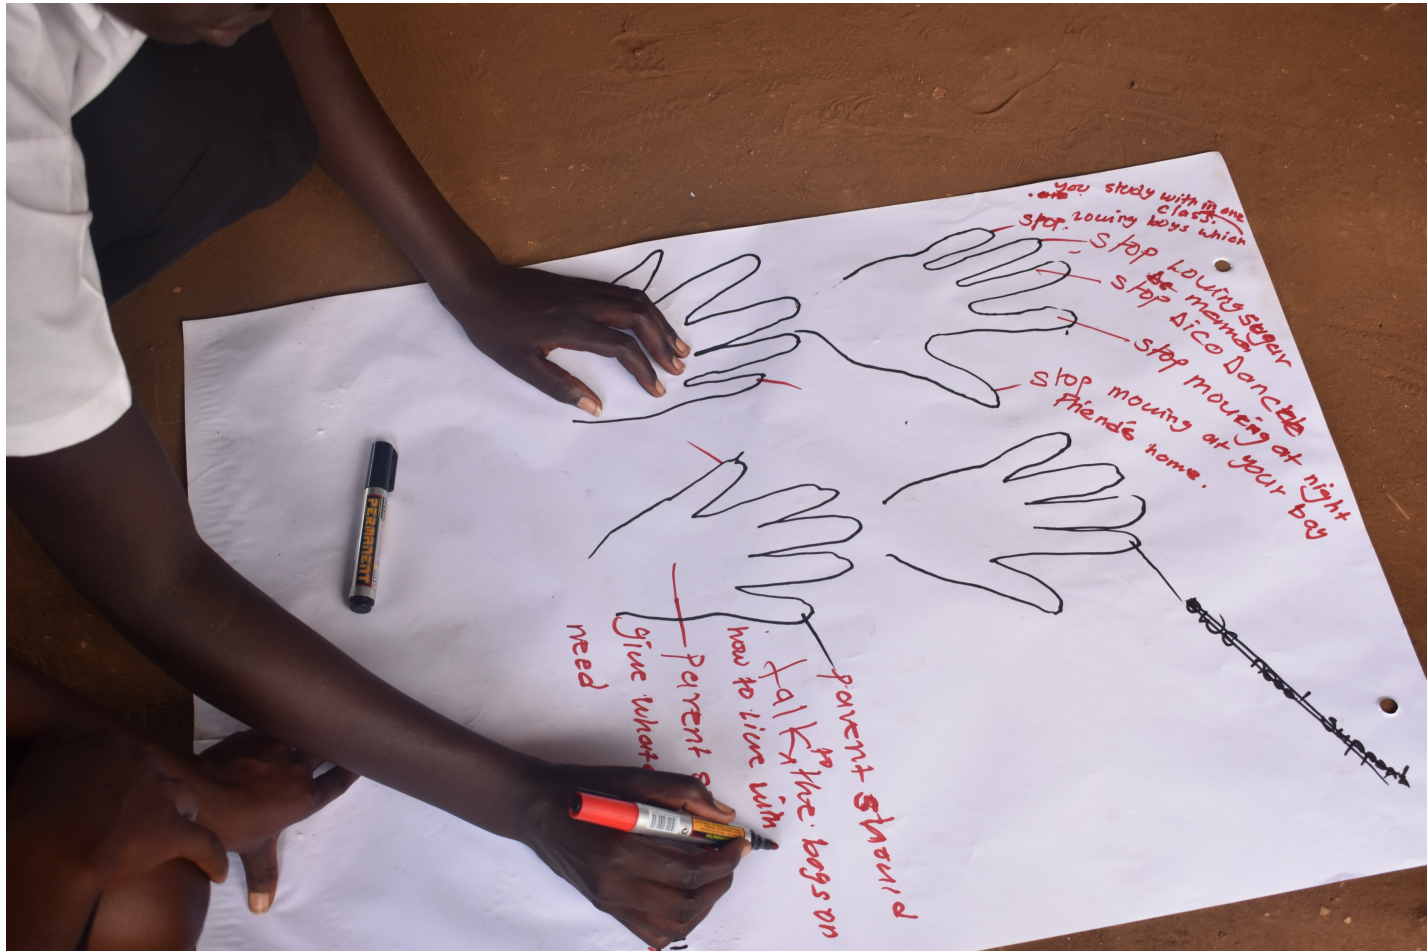 you study with in one
class.
stop. loving boys which
stop Loving sugar
mama
stop Dico Dance
stop moving at night
stop moving at your boy
friends home.
we need support
parent should
talk to the boys on
how to live with
parent
give what
need
PERMANENT